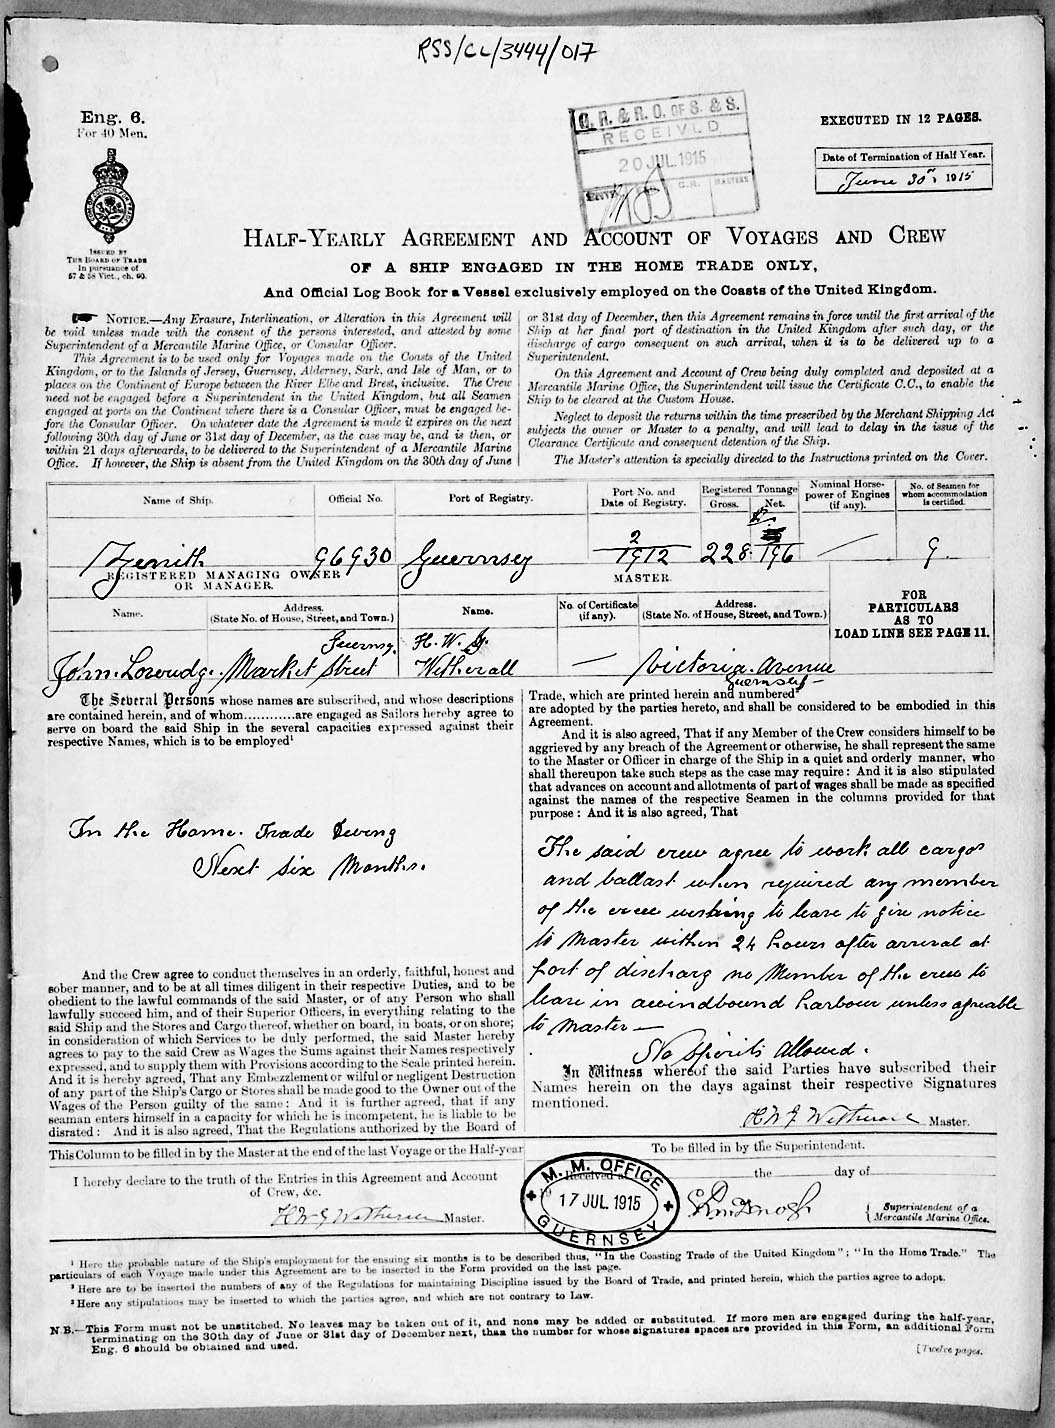 RSS/CL/3444/017
Eng. 6.
For 40 Men.
ISSUED BY
THE BOARD OF TRADE
In pursuance of
57 & 58 Vict., ch. 60.
G. R. & R. O. OF S. & S.
RECEIVED
20 JUL. 1915
C.R.
MASTERS
EXECUTED IN 12 PAGES.
Date of Termination of Half Year.
June 30th 1915
HALF-YEARLY AGREEMENT AND ACCOUNT OF VOYAGES AND CREW
OF A SHIP ENGAGED IN THE HOME TRADE ONLY,
And Official Log Book for a Vessel exclusively employed on the Coasts of the United Kingdom.
NOTICE.—Any Erasure, Interlineation, or Alteration in this Agreement will
be void unless made with the consent of the persons interested, and attested by some
Superintendent of a Mercantile Marine Office, or Consular Officer.
This Agreement is to be used only for Voyages made on the Coasts of the United
Kingdom, or to the Islands of Jersey, Guernsey, Alderney, Sark, and Isle of Man, or to
places on the Continent of Europe between the River Elbe and Brest, inclusive. The Crew
need not be engaged before a Superintendent in the United Kingdom, but all Seamen
engaged at ports on the Continent where there is a Consular Officer, must be engaged be-
fore the Consular Officer. On whatever date the Agreement is made it expires on the next
following 30th day of June or 31st day of December, as the case may be, and is then, or
within 21 days afterwards, to be delivered to the Superintendent of a Mercantile Marine
Office. If however, the Ship is absent from the United Kingdom on the 30th day of June
or 31st day of December, then this Agreement remains in force until the first arrival of the
Ship at her final port of destination in the United Kingdom after such day, or the
discharge of cargo consequent on such arrival, when it is to be delivered up to a
Superintendent.
On this Agreement and Account of Crew being duly completed and deposited at a
Mercantile Marine Office, the Superintendent will issue the Certificate C.C., to enable the
Ship to be cleared at the Custom House.
Neglect to deposit the returns within the time prescribed by the Merchant Shipping Act
subjects the owner or Master to a penalty, and will lead to delay in the issue of the
Clearance Certificate and consequent detention of the Ship.
The Master's attention is specially directed to the Instructions printed on the Cover.
Name of Ship. Official No. Port of Registry. Port No. and Date of Registry. Registered Tonnage Gross. Net. Nominal Horse-power of Engines (if any). No. of Seamen for whom accommodation is certified.
Zenith 96930 Guernsey 2/1912 228. 196 — 9.
REGISTERED MANAGING OWNER
OR MANAGER.
MASTER.
Name. Address. (State No. of House, Street, and Town.) Name. No. of Certificate (if any). Address. (State No. of House, Street, and Town.)
FOR
PARTICULARS
AS TO
LOAD LINE SEE PAGE 11.
John. Market Street Guernsey. H. W. G. Witherall — Victoria. Avenue Guernsey—
The Several Persons whose names are subscribed, and whose descriptions
are contained herein, and of whom............are engaged as Sailors hereby agree to
serve on board the said Ship in the several capacities expressed against their
respective Names, which is to be employed¹
In the Home. Trade During
Next Six Months.
And the Crew agree to conduct themselves in an orderly, faithful, honest and
sober manner, and to be at all times diligent in their respective Duties, and to be
obedient to the lawful commands of the said Master, or of any Person who shall
lawfully succeed him, and of their Superior Officers, in everything relating to the
said Ship and the Stores and Cargo thereof, whether on board, in boats, or on shore;
in consideration of which Services to be duly performed, the said Master hereby
agrees to pay to the said Crew as Wages the Sums against their Names respectively
expressed, and to supply them with Provisions according to the Scale printed herein.
And it is hereby agreed, That any Embezzlement or wilful or negligent Destruction
of any part of the Ship's Cargo or Stores shall be made good to the Owner out of the
Wages of the Person guilty of the same: And it is further agreed, that if any
seaman enters himself in a capacity for which he is incompetent, he is liable to be
disrated: And it is also agreed, That the Regulations authorized by the Board of
Trade, which are printed herein and numbered²
are adopted by the parties hereto, and shall be considered to be embodied in this
Agreement.
And it is also agreed, That if any Member of the Crew considers himself to be
aggrieved by any breach of the Agreement or otherwise, he shall represent the same
to the Master or Officer in charge of the Ship in a quiet and orderly manner, who
shall thereupon take such steps as the case may require: And it is also stipulated
that advances on account and allotments of part of wages shall be made as specified
against the names of the respective Seamen in the columns provided for that
purpose: And it is also agreed, That
The said crew agree to work all cargos
and ballast when required any member
of the crew wishing to leave to give notice
to Master within 24 hours after arrival at
port of discharg no Member of the crew to
leave in a windbound harbour unless agreable
to Master—
No Spirits Allowed.
In Witness whereof the said Parties have subscribed their
Names herein on the days against their respective Signatures
mentioned.
H W G Witherall Master.
This Column to be filled in by the Master at the end of the last Voyage or the Half-year
I hereby declare to the truth of the Entries in this Agreement and Account
of Crew, &c.
H W G Witherall Master.
To be filled in by the Superintendent.
Received at
the day of
M. M. OFFICE
17 JUL 1915
GUERNSEY
Superintendent of a
Mercantile Marine Office.
¹ Here the probable nature of the Ship's employment for the ensuing six months is to be described thus, "In the Coasting Trade of the United Kingdom"; "In the Home Trade." The
particulars of each Voyage made under this Agreement are to be inserted in the Form provided on the last page.
² Here are to be inserted the numbers of any of the Regulations for maintaining Discipline issued by the Board of Trade, and printed herein, which the parties agree to adopt.
³ Here any stipulations may be inserted to which the parties agree, and which are not contrary to Law.
N.B.—This Form must not be unstitched. No leaves may be taken out of it, and none may be added or substituted. If more men are engaged during the half-year,
terminating on the 30th day of June or 31st day of December next, than the number for whose signatures spaces are provided in this Form, an additional Form
Eng. 6 should be obtained and used.
[Twelve pages.